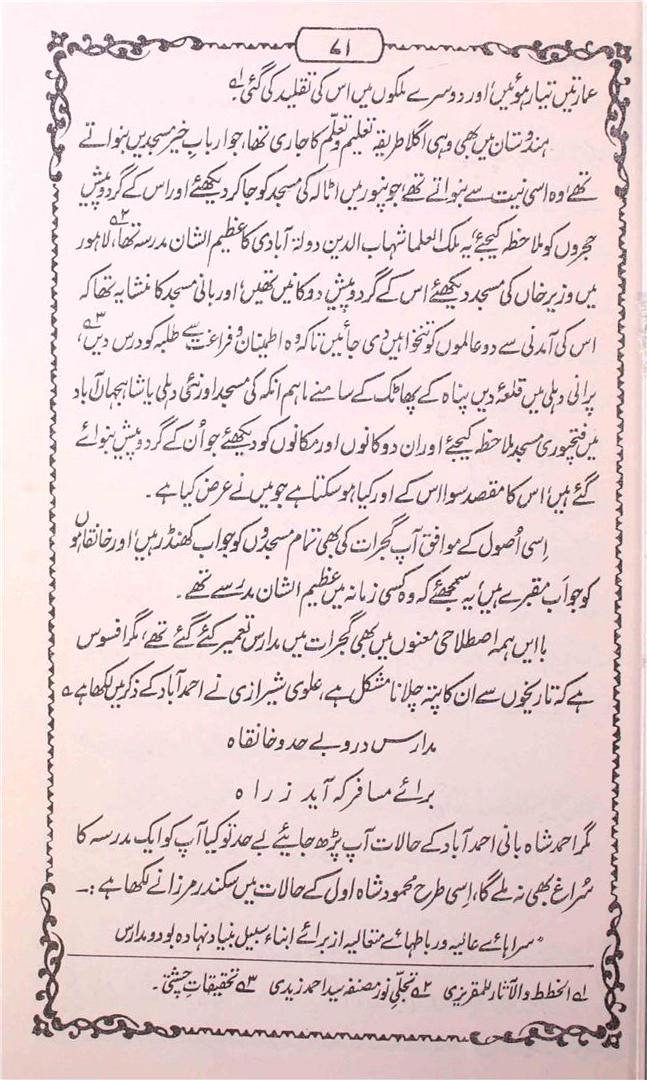 ۷۱
عمارتیں تیار ہوئیں اور دوسرے ملکوں میں اس کی تقلید کی گئی۔ ۱ھ
ہندوستان میں بھی وہی اگلا طریقہ تعلیم و تعلّم کا جاری تھا، جو اربابِ خیر مسجدیں بنواتے
تھے، وہ اسی نیت سے بنواتے تھے، جونپور میں اٹالہ کی مسجد کو جا کر دیکھئے اور اس کے گرد و پیش
حجروں کو ملاحظہ کیجئے، یہ ملک العلما شہاب الدین دولۃ آبادی کا عظیم الشان مدرسہ تھا، ۲ھ لاہور
میں وزیر خاں کی مسجد دیکھئے اس کے گرد و پیش دوکانیں تھیں، اور بانی مسجد کا منشا یہ تھا کہ
اس کی آمدنی سے دو عالموں کو تنخواہیں دی جائیں تاکہ وہ اطمینان و فراغت سے طلبہ کو درس دیں، ۳ھ
پرانی دہلی میں قلعۂ دیں پناہ کے پھاٹک کے سامنے ماہم انکہ کی مسجد اور نئی دہلی یا شاہجہاں آباد
میں فتحپوری مسجد ملاحظہ کیجئے اور ان دوکانوں اور مکانوں کو دیکھئے جو اُن کے گرد و پیش بنوائے
گئے ہیں، اس کا مقصد سوا اس کے اور کیا ہو سکتا ہے جو میں نے عرض کیا ہے۔
اِسی اُصول کے موافق آپ گجرات کی بھی تمام مسجدوں کو جو اب کھنڈر ہیں، اور خانقاہوں
کو جو اَب مقبرے ہیں، یہ سمجھئے کہ وہ کسی زمانہ میں عظیم الشان مدرسے تھے۔
با ایں ہمہ اصطلاحی معنوں میں بھی گجرات میں مدارس تعمیر کئے گئے تھے، مگر افسوس
ہے کہ تاریخوں سے ان کا پتہ چلانا مشکل ہے، علوی شیرازی نے احمد آباد کے ذکر میں لکھا ہے ؎
مدارس درو بے حد و خانقاہ
برائے مسافر کہ آید ز راہ
مگر احمد شاہ بانی احمد آباد کے حالات آپ پڑھ جائیے بے حد تو کیا آپ کو ایک مدرسہ کا
سُراغ بھی نہ ملے گا، اِسی طرح محمود شاہ اول کے حالات میں سکندر مرزا نے لکھا ہے :۔
"سراہائے عالیہ و رباطہائے متعالیہ از برائے ابناء سبیل بنیاد نہادہ بود و مدارس
۱ھ الخطط والآثار للمقریزی ۲ھ تجلّیِ نور مصنفہ سید احمد زیدی ۳ھ تحقیقاتِ چشتی۔